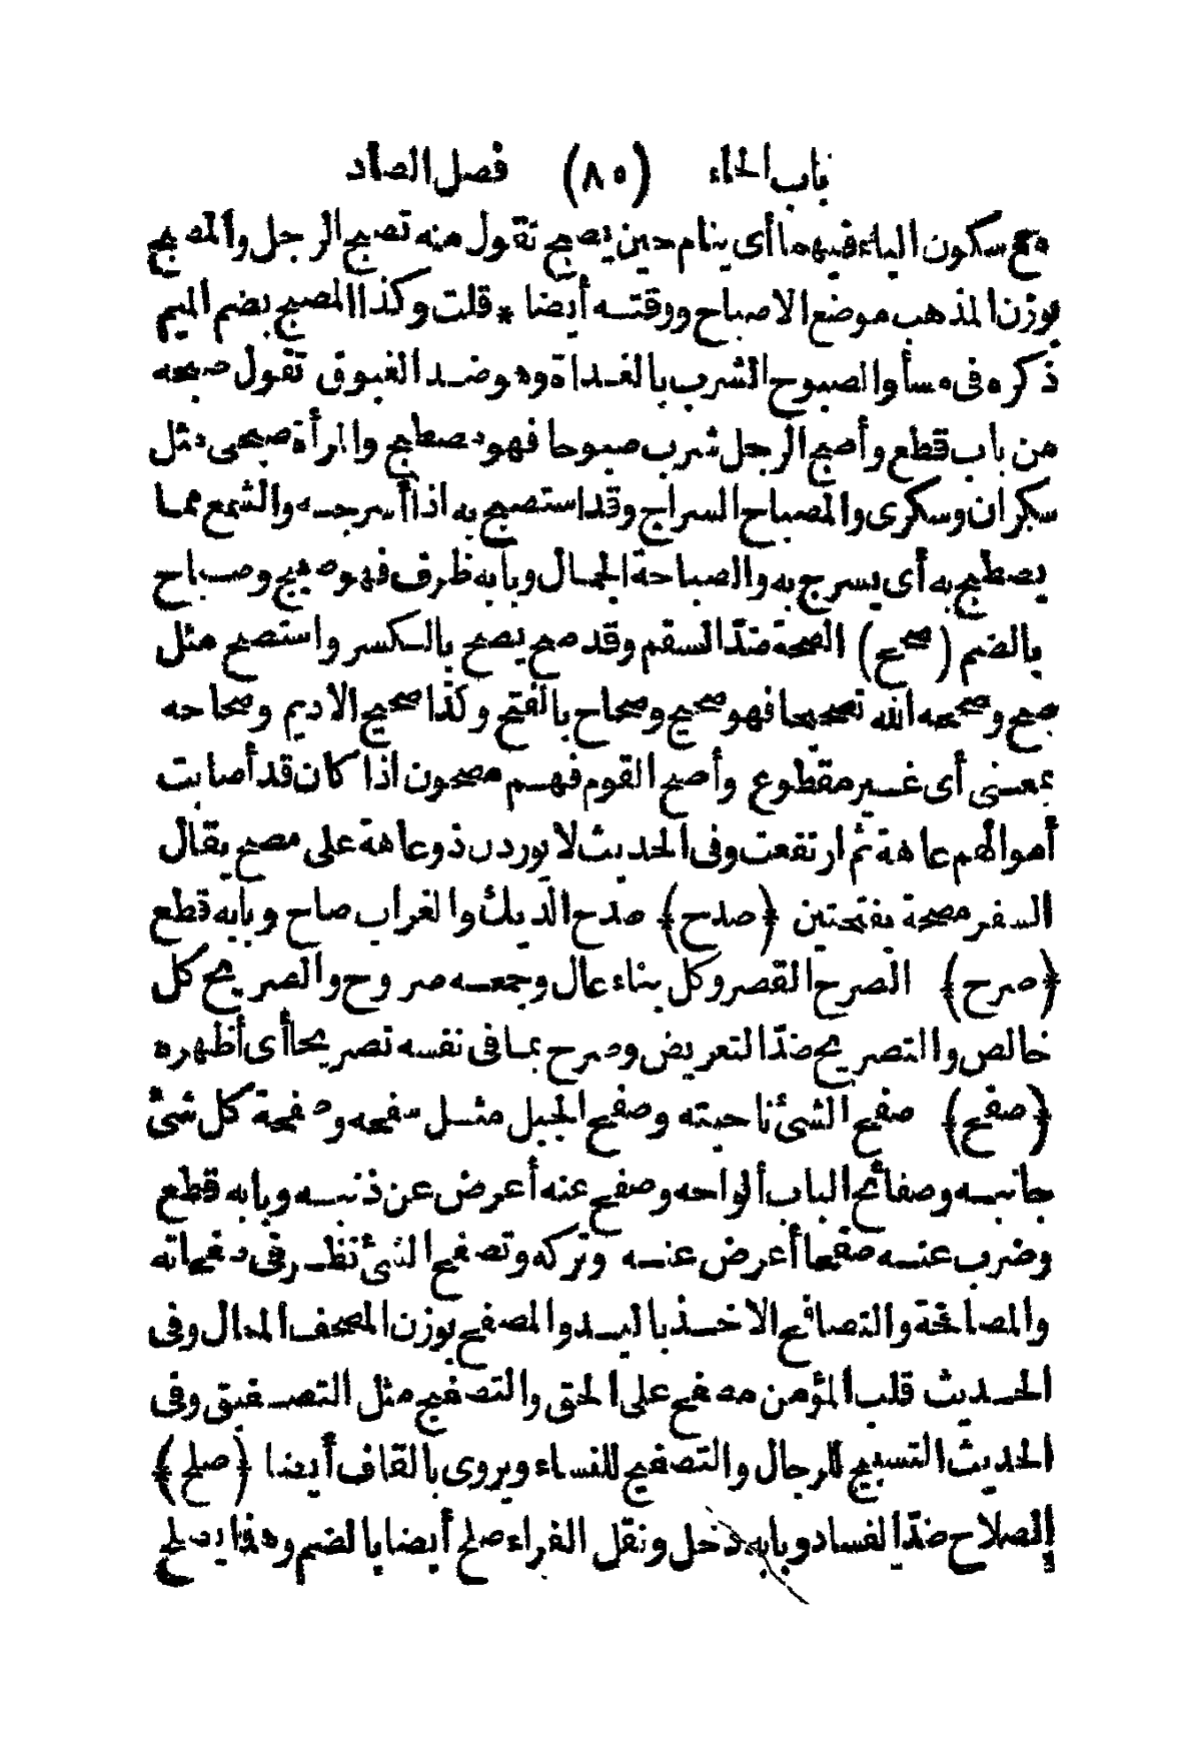 باب الحاء (٨٥) فصل الصاد
مع سكون الباء فيهما أى ينام حين يصبح تقول منه تصبح الرجل والمصبح
بوزن المذهب موضع الاصباح ووقته أيضا * قلت وكذا المصبح بضم الميم
ذكره فى مسأ والصبوح الشرب بالغداة وهو ضد الغبوق تقول صبحه
من باب قطع وأصبح الرجل شرب صبوحا فهو مصطبح والمرأة صبحى مثل
سكران وسكرى والمصباح السراج وقد استصبح به اذا أسرجه والشمع مما
يصطبح به أى يسرج به والصباحة الجمال وبابه ظرف فهو صبيح وصباح
بالضم (صحح) الصحة ضدّ السقم وقد صح يصح بالكسر واستصح مثل
صح وصححه الله تصحيحا فهو صحيح وصحاح بالفتح وكذا صحيح الاديم وصحاحه
بمعنى أى غير مقطوع وأصح القوم فهم مصحون اذا كان قد أصابت
أموالهم عاهة ثم ارتفعت وفى الحديث لا يوردن ذو عاهة على مصح يقال
السفر مصحة بفتحتين ﴿صدح﴾ صدح الديك والغراب صاح وبابه قطع
﴿صرح﴾ الصرح القصر وكل بناء عال وجمعه صروح والصريح كل
خالص والتصريح ضدّ التعريض وصرح بما فى نفسه تصريحا أى أظهره
﴿صفح﴾ صفح الشئ ناحيته وصفح الجبل مثل سفحه وصفحة كل شئ
جانبه وصفائح الباب ألواحه وصفح عنه أعرض عن ذنبه وبابه قطع
وضرب عنه صفحا أعرض عنه وتركه وتصفح الشئ نظر فى صفحاته
والمصافحة والتصافح الاخذ باليد والمصفح بوزن المصحف الممال وفى
الحديث قلب المؤمن مصفح على الحق والتصفيح مثل التصفيق وفى
الحديث التسبيح للرجال والتصفيح للنساء ويروى بالقاف أيضا ﴿صلح﴾
الصلاح ضدّ الفساد وبابه دخل ونقل الفراء صلح أيضا بالضم وهذا يصلح